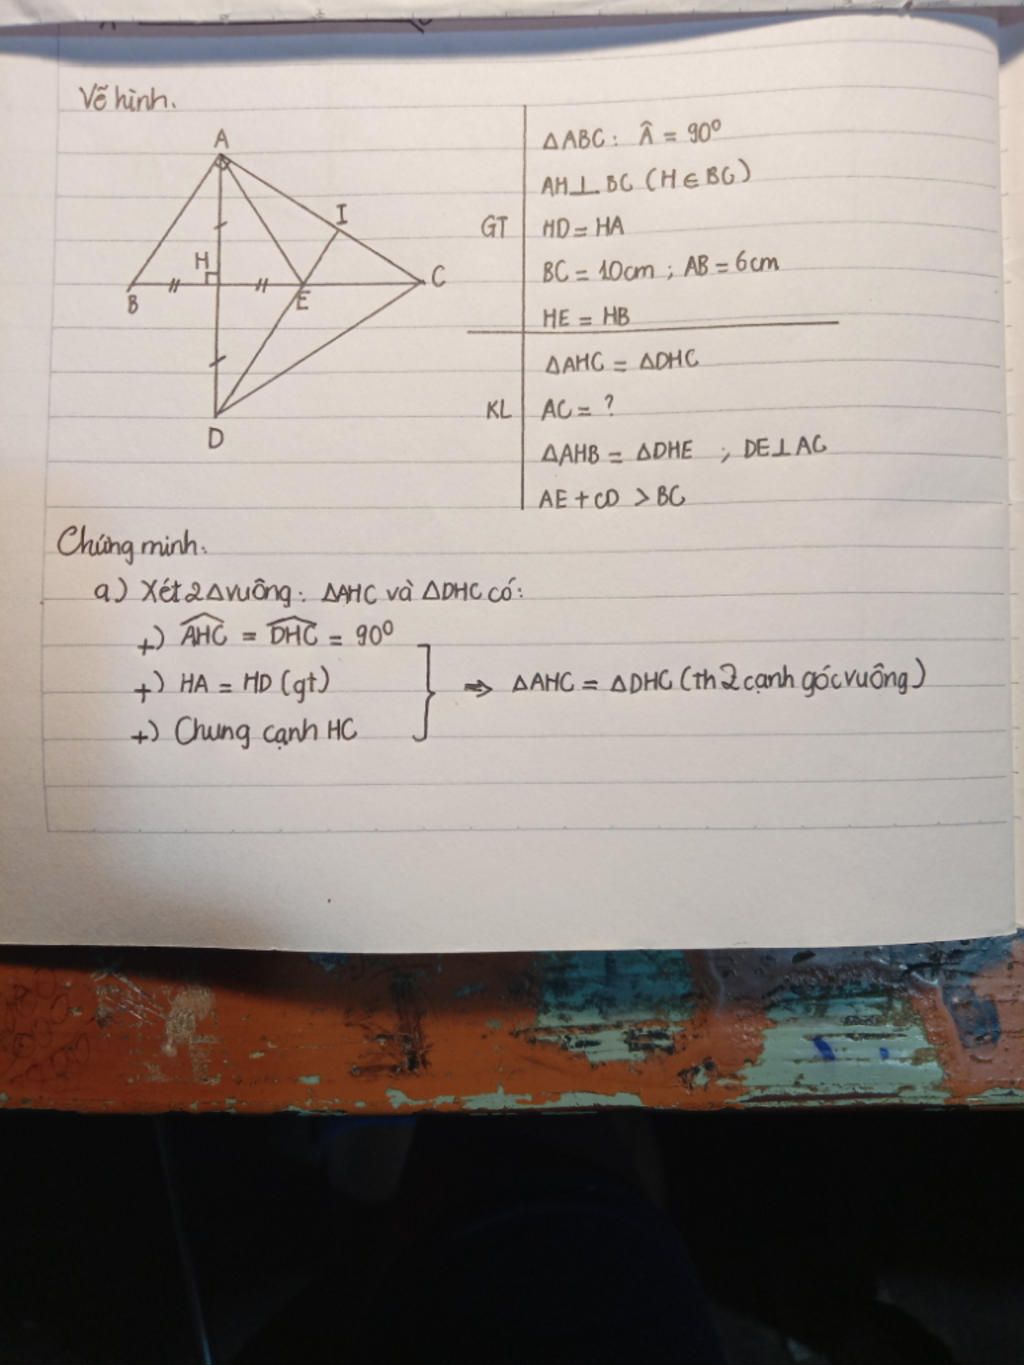 Vẽ hình.
A
I
H
B
E
C
D
GT
ΔABC: Â = 90⁰
AH⊥BC (H∈BC)
HD = HA
BC = 10cm ; AB = 6cm
HE = HB
KL
ΔAHC = ΔDHC
AC = ?
ΔAHB = ΔDHE ; DE⊥AC
AE + CD > BC
Chứng minh:
a) Xét 2 Δ vuông: ΔAHC và ΔDHC có:
+) AHC = DHC = 90⁰
+) HA = HD (gt)
+) Chung cạnh HC
⇒ ΔAHC = ΔDHC (th 2 cạnh góc vuông)